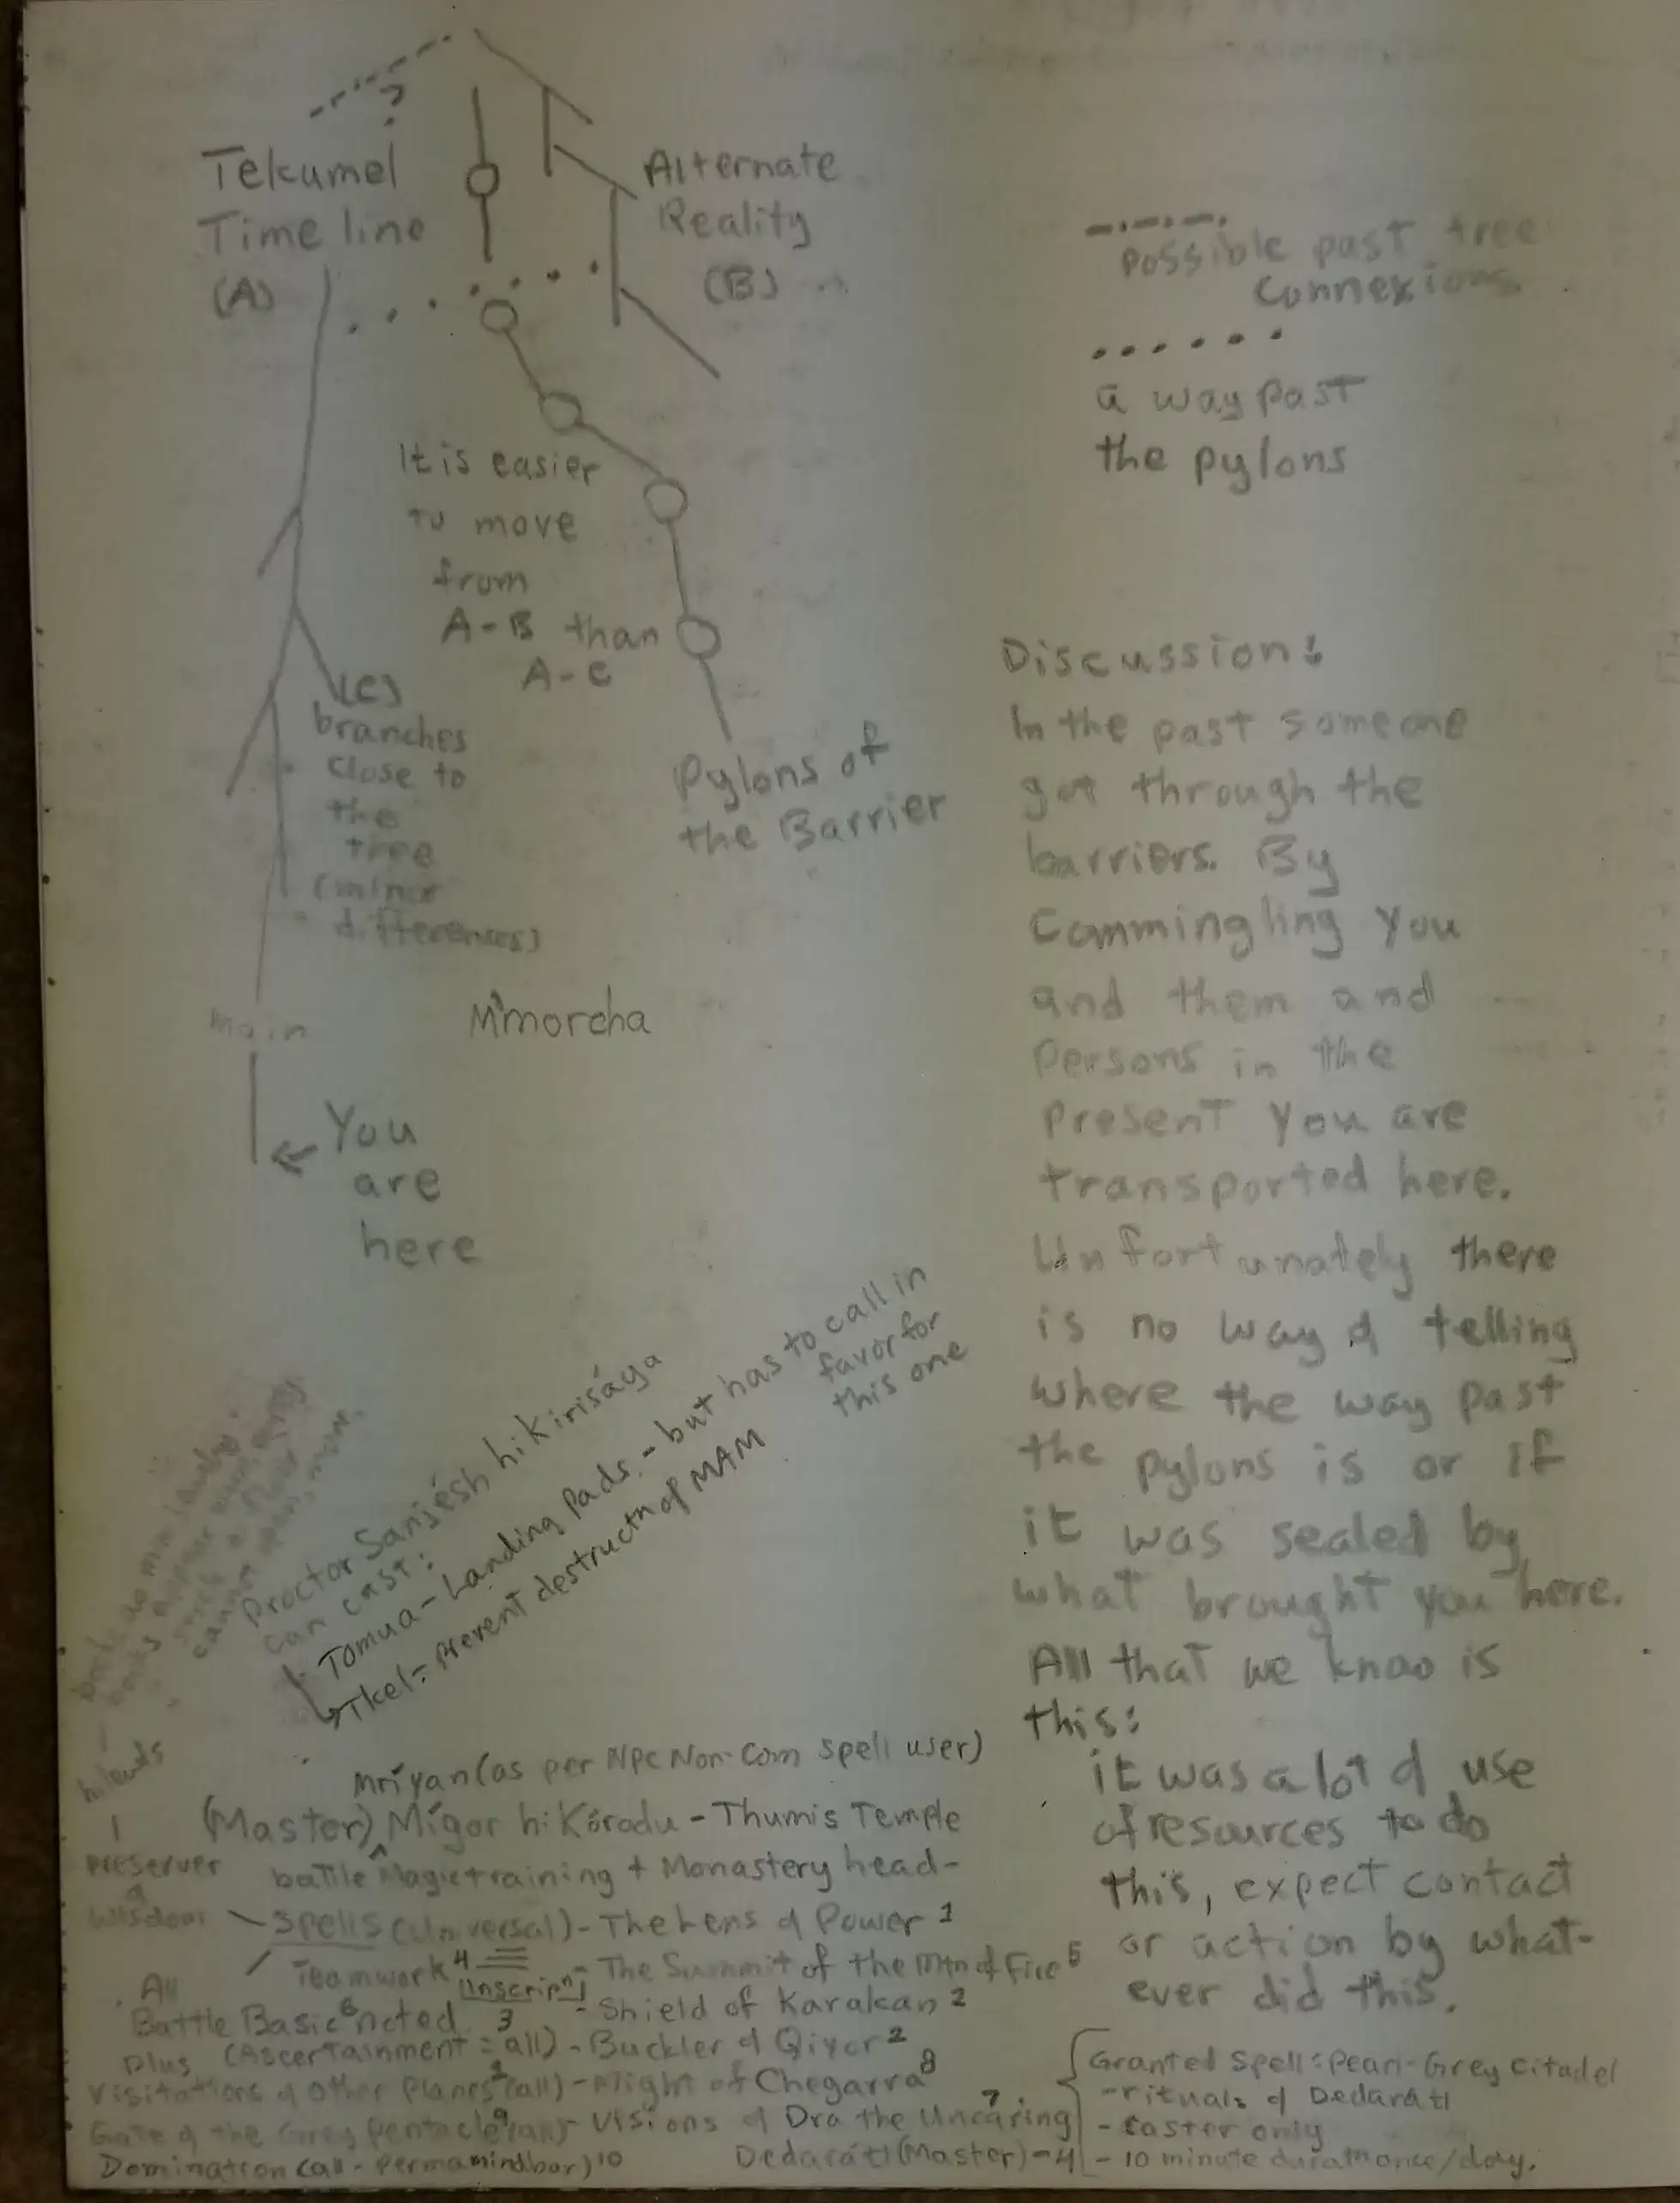 ?
Tekumel
Time line
(A)
Alternate
Reality
(B)
It is easier
to move
from
A-B than
A-C
(C)
branches
close to
the
tree
(minor
differences)
Pylons of
the Barrier
main
M'morcha
You
are
here
possible past tree
connexions.
a way past
the pylons
Discussion:
In the past someone
got through the
barriers. By
Commingling you
and them and
persons in the
present you are
transported here.
Unfortunately there
is no way of telling
where the way past
the pylons is or if
it was sealed by
what brought you here.
All that we know is
this:
it was a lot of use
of resources to do
this, expect contact
or action by what-
ever did this.
Proctor Sanjésh hiKirisáya
can cast:
Tomua - Landing Pads - but has to call in
favor for
this one
Tkel = Prevent destructn of MAM
Mríyan (as per NPC Non-Com spell user)
(Master) Mígor hiKóradu - Thumis Temple
battle Magic training + Monastery head-
preserver
of
wisdom
Spells (Universal) - The Lens of Power 1
Teamwork 4 - The Summit of the Mtn of Fire 5
[Inscript'n] - Shield of Karakan 2
All
Battle Basic 6 noted 3
plus (Ascertainment = all) - Buckler of Qiyor 2
Visitations of Other Planes (all) - Might of Chegarra 8
Gate of the Grey Pentacle 9 (all) - Visions of Dra the Uncaring 7
Domination (all - permamindbar) 10
Dedaráti (Master) - 4
Granted Spell: Pearl-Grey Citadel
- rituals of Dedaráti
- Caster only
- 10 minute duratn once/day.